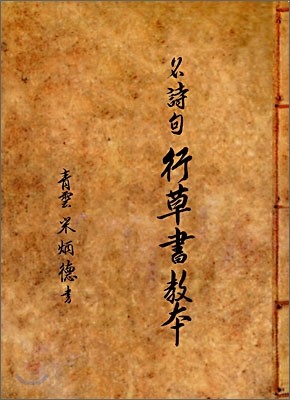 名詩句 行草書教本
青雲 宋炳德 書